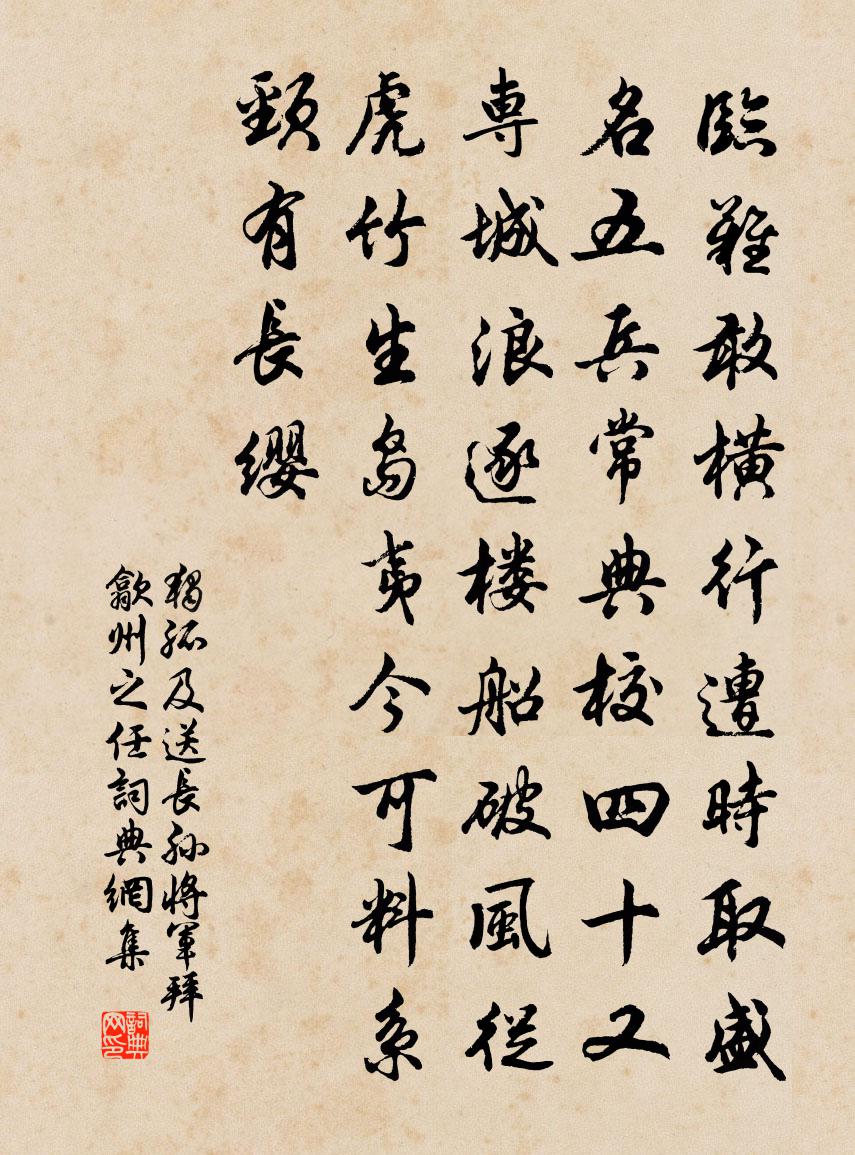 臨難敢橫行遭時取盛
名五兵常典校四十又
専城浪逐楼船破風從
虎竹生島夷今可料系
頸有長纓
獨孤及送長孫將軍拜
歙州之任詞典網集
詞典网印